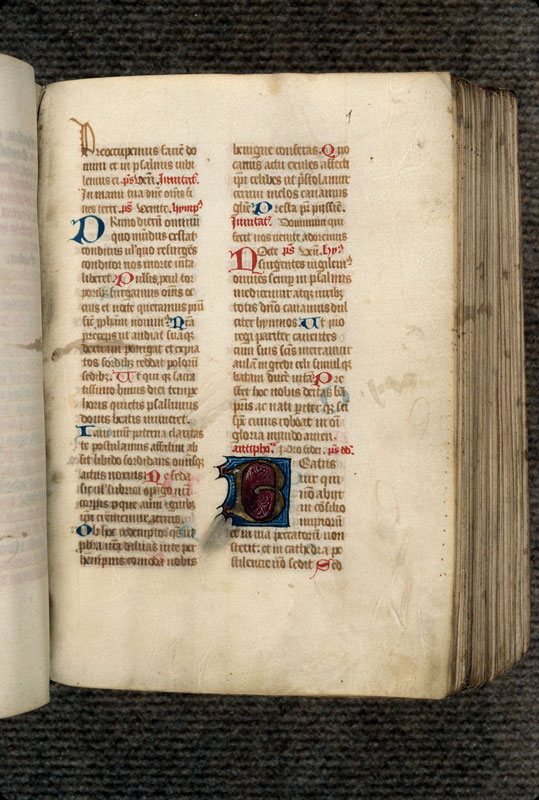 1
Preoccupemus faciē do
mini et in psalmis iubi
lemus ei. ps̄ Veni. Inuitat.
In manu tua dn̄e om̄s fi
nes terre. ps̄ Venite. hymp9
PRimo dierū omniū
quo mūdus extat
conditus uł quo resurgēs
conditor nos morte uicta
liberet. Pulsis ꝓcul tor
poribꝫ surgamus om̄es oc
cius et nocte queramus piū
sic̄ ꝓphām nouimꝰ. Nr̄as
preces ut audiat suāqꝫ
dexteram porrigat et expia
tos sordibꝫ reddat polorū
sedibꝫ. Ut qui qꝫ sacra
tissimo huius diei tempe
horis quietis psallimus
donis beatis muneret.
Iam nūc paterna claritas
te postulamus affatim ab
sit libido sordidans om̄isqꝫ
actus noxius. Ne feda
sit uł lubrica cōpago nr̄i
corporis ꝑ quē auerni ignibꝫ
ipi crememur acriꝰ.
Ob hoc redemptor quesumꝰ
ut probra nr̄a diluas uite per
hennis comoda nobis
benigne conferas. Quo
carnis actu exules effecti
ipi celibes ut p̄stolamur
cernui melos canamus
glīe. Presta pr̄ pijssie.
Inuitat. Dominum qui
fecit nos uenite adoremus
ps̄ Veni. hy9
Nocte surgentes uigilemꝰ
omnes semp in psalmis
meditemur atqꝫ uiribꝫ
totis dn̄o canamus dul
citer hymnos. Ut pio
regi pariter canentes
cum suis sc̄is mereamur
aulā ingredi celi simul et
beatam ducere uitā. Pre
stet hoc nobis deitas bt̄a
pris ac nati pariterqꝫ sc̄i
spc̄ cuius reboat in oī
gloria mundo amen.
antipho9 Pro fidei. ps̄ dd.
BEatus
uir qui
nō abijt
in cōsilio
impiorū
et in uia peccatorū non
stetit: et in cathedra pe
stilencie nō sedit Sed